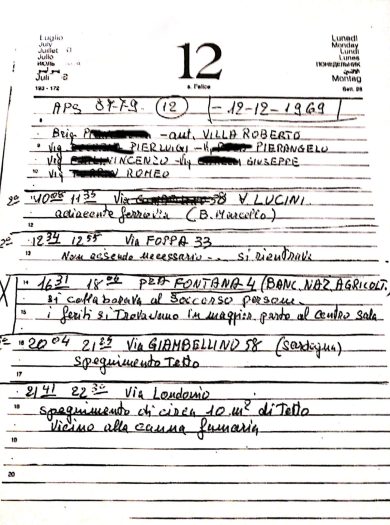 Luglio
July
Juillet
Julio
Juli
12
s. Felice
Lunedì
Monday
Lundi
Lunes
ПОНЕДЕЛЬНИК
Montag
193 - 172
Sett. 28
APS 12 - 12-12-1969
Brig. P PIERLUIGI - aut. VILLA ROBERTO
Vig PIERANGELO
Vig VINCENZO - Vig GIUSEPPE
Vig ROMEO
10 05 11 35 Via 58 V. LUCINI
adiacente ferrovia (B. Marcello)
12 34 12 55 Via FOPPA 33
Non essendo necessario -- si rientrava
16 31 18 PZA FONTANA 4 (BANC. NAZ AGRICOLT.
si collaborava al Soccorso persone
i feriti si Trovavano in maggior parte al centro sala
20 04 21 25 Via GIAMBELLINO 58 (Sardegna)
Spegnimento Tetto
21 41 22 30 Via Londonio
spegnimento di circa 10 m² di Tetto
Vicino alla canna fumaria